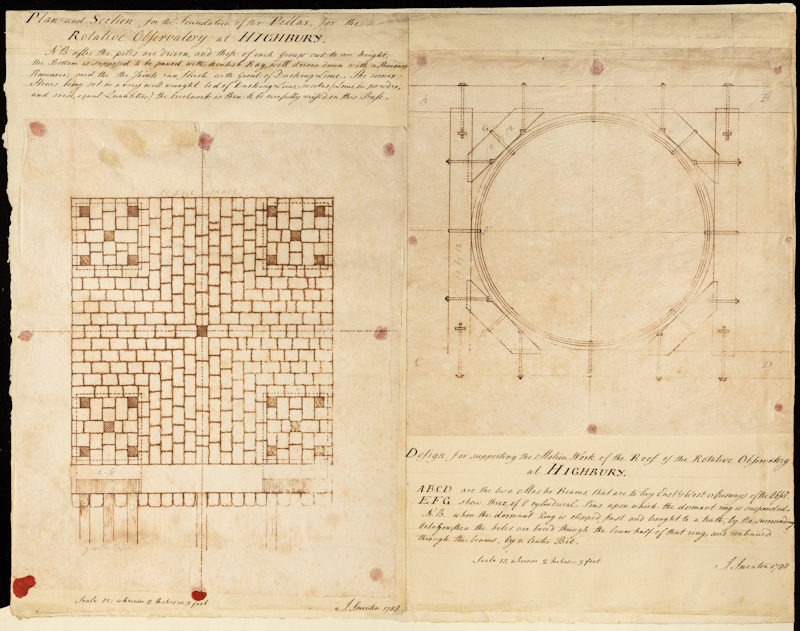 Plan and Section, for the Foundation of the Pillas, for the
Rotative Observatory at HIGHBURY.
NB after the piles are driven, and those of each Group cut to an height,
the Bottom is supposed to be paved with Kentish Rag, well driven down with a
Rammer, and the Joints run flush with Grout of Dashing Lime. The corner
Stones being set in a very well wrought bed of Dashing Lime
and sand, equal Quantities) the brickwork is then to be carefully raised on this Base.
Scale 15. wherein 2 Inches = 3 feet
J. Smeaton 1788
A
B
G
10 by 12
10 by 12
E
C
D
Design, for supporting the Motion Work of the Roof of the Rotative Observatory
at HIGHBURY.
ABCD are the two Beams, that are to lay East & West of the
EFG show three of 8 cylindrical Pins upon which the dormant ring is suspended.
N.B. when the dormant Ring is clipped fast and brought to a truth, by the surrounding
then the holes are bored through the lower half of that ring, and continued
through the beams, by a Center Bit.
Scale 15, wherein 2 Inches = 3 feet
J. Smeaton 1788